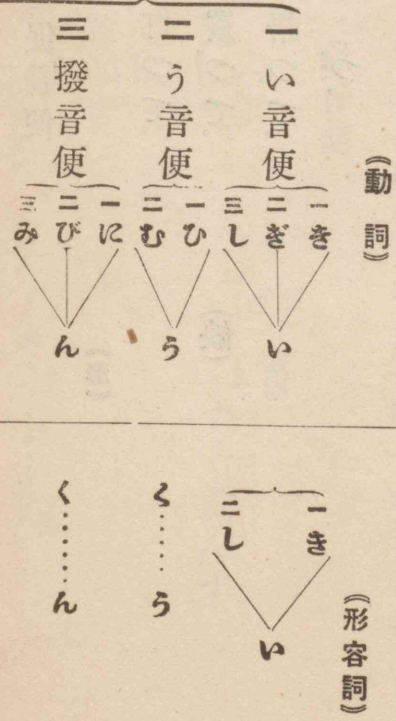 《動詞》
一い音便
一き
二ぎ
三し
い
二う音便
一ひ
二む
う
三撥音便
一に
二び
三み
ん
《形容詞》
一き
二し
い
く……う
く……ん